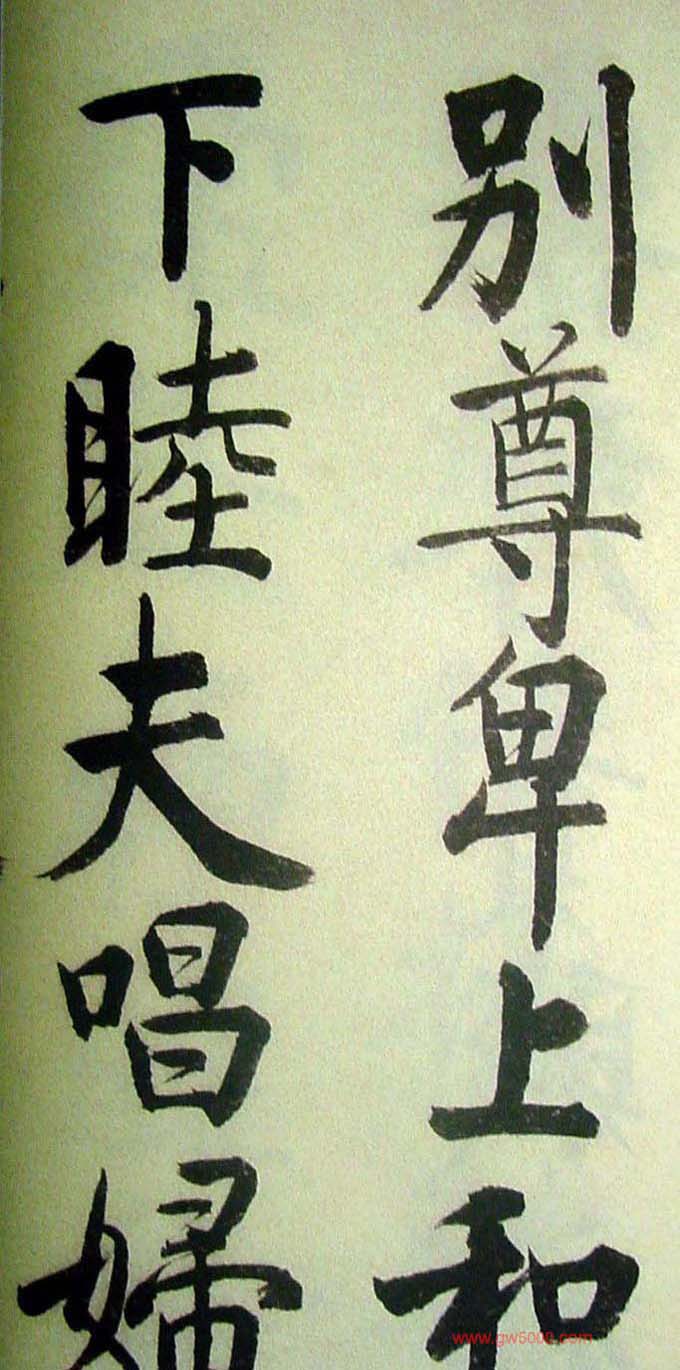 别尊卑上和
下睦夫唱婦
www.gw5000.com